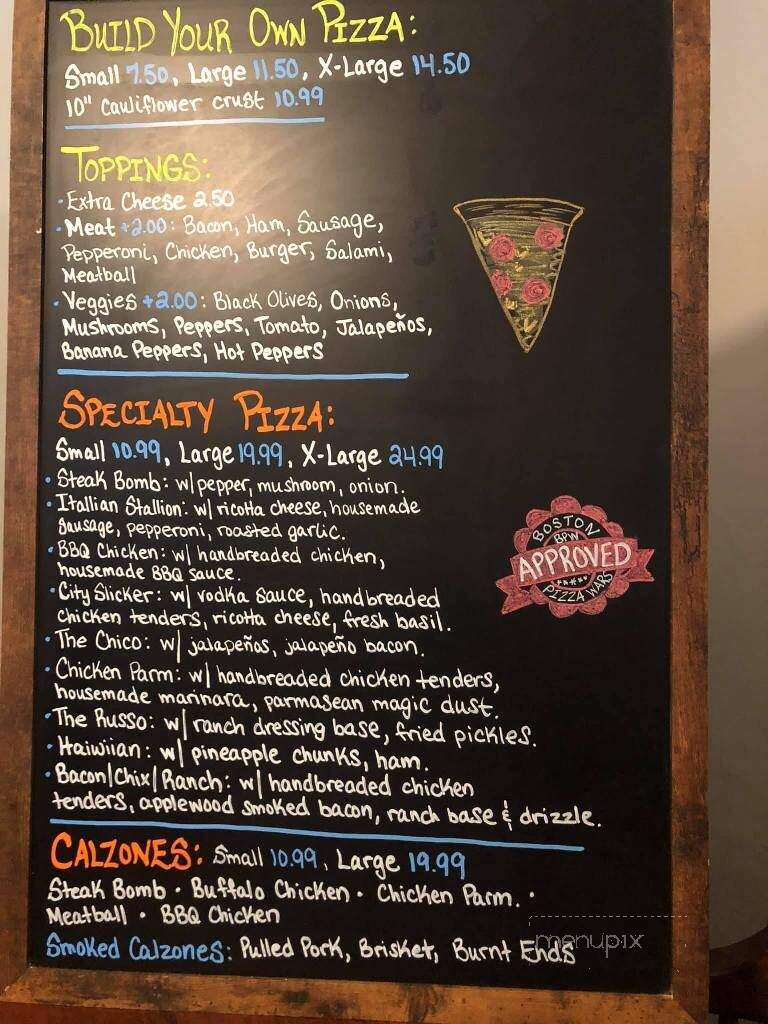 BUILD YOUR OWN PIZZA:
Small 7.50, Large 11.50, X-Large 14.50
10" Cauliflower crust 10.99
TOPPINGS:
· Extra Cheese 2.50
· Meat +2.00: Bacon, Ham, Sausage,
Pepperoni, Chicken, Burger, Salami,
Meatball
· Veggies +2.00: Black Olives, Onions,
Mushrooms, Peppers, Tomato, Jalapeños,
Banana Peppers, Hot Peppers
SPECIALTY PIZZA:
Small 10.99, Large 19.99, X-Large 24.99
· Steak Bomb: w/ pepper, mushroom, onion.
· Itallian Stallion: w/ ricotta cheese, housemade
sausage, pepperoni, roasted garlic.
· BBQ Chicken: w/ handbreaded chicken,
housemade BBQ sauce.
· City Slicker: w/ vodka sauce, handbreaded
chicken tenders, ricotta cheese, fresh basil.
· The Chico: w/ jalapeños, jalapeño bacon.
· Chicken Parm: w/ handbreaded chicken tenders,
housemade marinara, parmasean magic dust.
· The Russo: w/ ranch dressing base, fried pickles.
· Haiwiian: w/ pineapple chunks, ham.
· Bacon/Chix/Ranch: w/ handbreaded chicken
tenders, applewood smoked bacon, ranch base & drizzle.
BOSTON
BPW
APPROVED
PIZZA WARS
CALZONES: Small 10.99, Large 19.99
Steak Bomb · Buffalo Chicken · Chicken Parm. ·
Meatball · BBQ Chicken
Smoked Calzones: Pulled Pork, Brisket, Burnt Ends
menupix